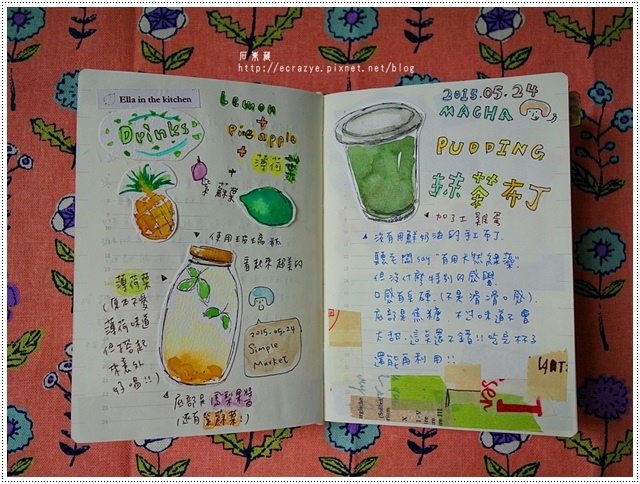 阿棗麵
http://ecrazye.pixnet.net/blog
Ella in the kitchen
Lemon
+
Pineapple
+
薄荷葉
+
紫蘇葉
Drinks
使用玻璃瓶
看起來超美的
薄荷葉
薄荷味道
但搭起
來意外
好喝!!)
2015.05.24
Simple
Market
底部是鳳梨果醬
(還有紫蘇葉!)
2015.05.24
MACHA
PUDDING
抹茶布丁
加了土雞蛋
沒有用鮮奶油的手工布丁
聽老闆say "有用天然綠藻"!
但沒什麼特別的感覺
口感有些硬.(不是滑滑口感).
底部是焦糖, 不過味道不會
太甜. 這菜還不錯!! 吃完杯子
還能再利用!!